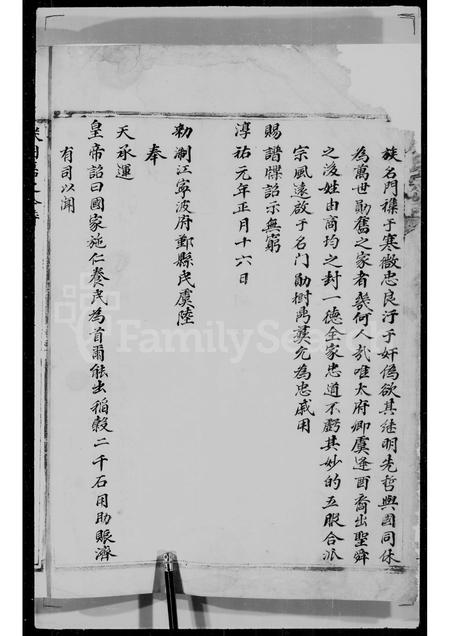 族名門襍于寒微忠良汙于奸偽欲其继明先哲與國同休
為萬世勛舊之家者幾何人哉唯太府卿虞逢酉裔出聖舜
之後姓由商均之封一德全家忠道不虧其妙的五服合派
宗風遠啟于名门勛樹禹謨允為忠戚用
賜譜牒詔示無窮
淳祐元年正月十六日
勅淛江寧波府鄞縣民虞陸
奉
天承運
皇帝詔曰國家施仁養民為首爾能出稻穀二千石用助賑濟
有司以闻
FamilySearch